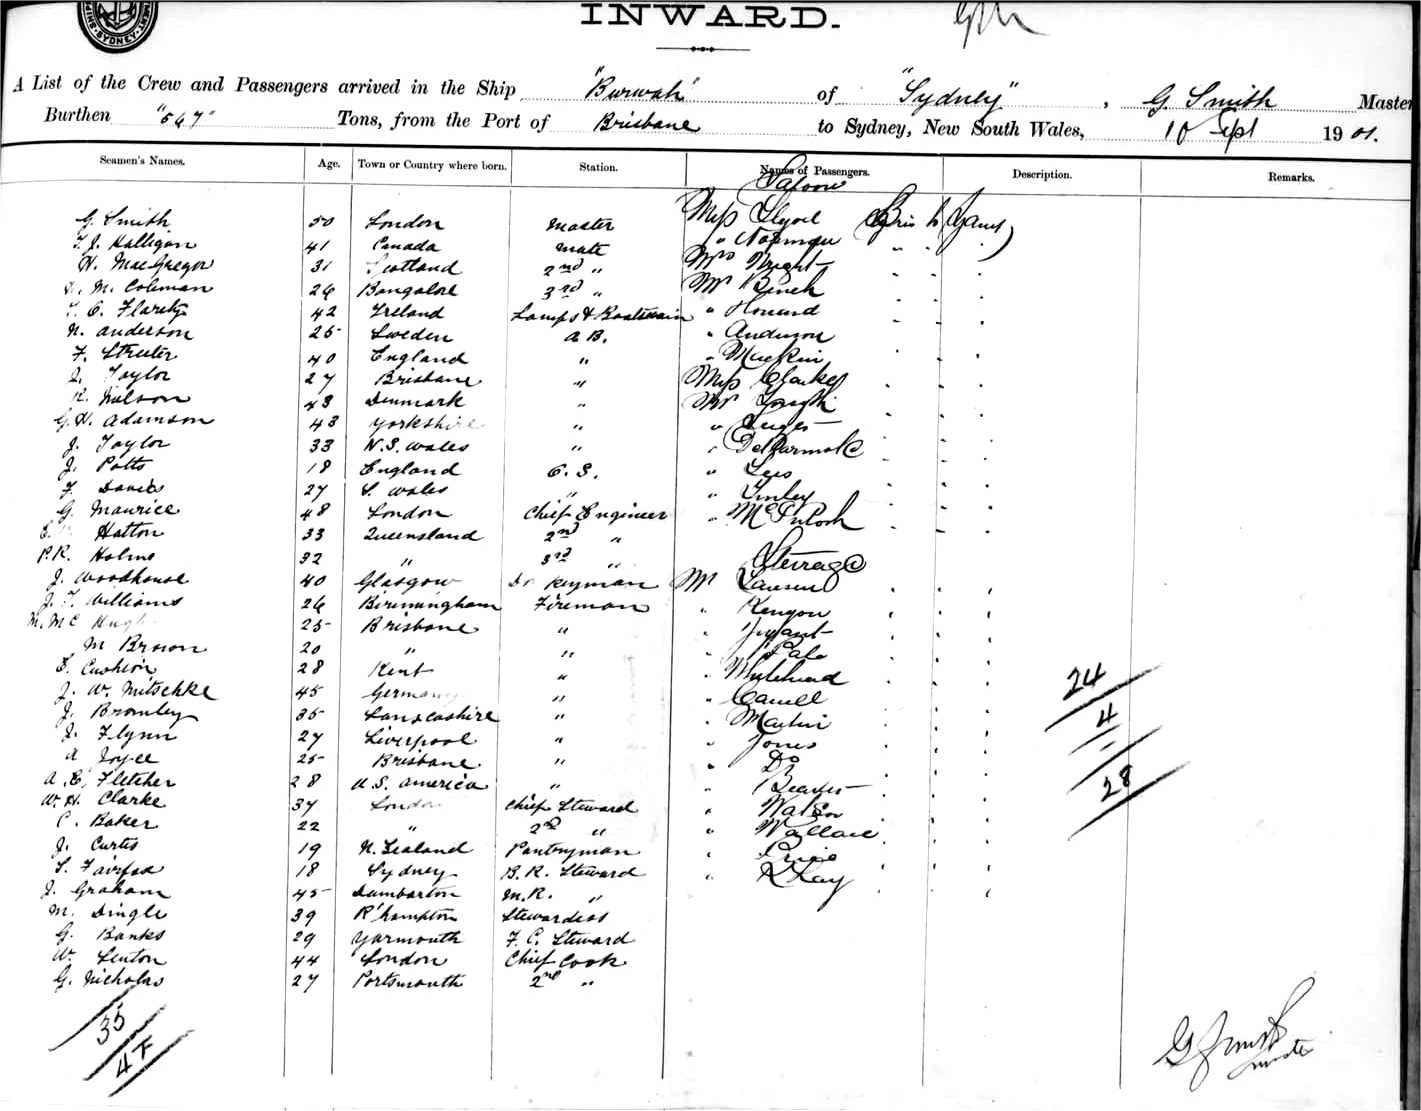 INWARD.
SYDNEY
A List of the Crew and Passengers arrived in the Ship "Burwah" of "Sydney", G. Smith Master
Burthen "647" Tons, from the Port of Brisbane to Sydney, New South Wales, 10 Sept 1901.
Seamen's Names. Age. Town or Country where born. Station. Names of Passengers. Description. Remarks.
Saloon
G. Smith 50 London Master Miss Lloyd
T. J. Halligan 41 Canada Mate "
H. MacGregor 31 Scotland 2nd " Mrs Wright
M. Coleman 26 Bangalore 3rd " Mr Bench
42 Ireland Lamps & Boatswain " Howard
N. Anderson 25 Sweden A B. " Anderson
F. Streeter 40 England " " Mackin
J. Taylor 27 Brisbane " Miss Clarke
Nilson 43 Denmark " Mr
G. H. Adamson 43 Yorkshire " "
J. Taylor 33 N. S. Wales " "
J. Potts 18 England O. S. " Lees
F. Davies 27 S. Wales " "
G. Maurice 48 London Chief Engineer " McIntosh
Hatton 33 Queensland 2nd "
P. R. Holme 32 " 3rd " Steerage
J. Woodhouse 40 Glasgow Dr Keyman Mr
J. T. Williams 26 Birmingham Fireman " Kenyon
25 Brisbane " "
M Brown 20 " " "
E. Cushion 28 Kent " "
J. W. Mitschke 45 Germany " "
24
J. Bromley 35 Lancashire " " Martin
4
J. Flynn 27 Liverpool " " Jones
A Joyce 25 Brisbane " " Do
A. E. Fletcher 28 U. S. America " "
28
W. H. Clarke 37 London Chief Steward " Watson
C. Baker 22 " 2nd " " Wallace
J. Curtis 19 N. Zealand Pantryman " Price
S. Fairfax 18 Sydney B. R. Steward " Kay
J. Graham 45 Dumbarton M. R. "
M. Dingle 39 R'hampton Stewardess
G. Banks 29 Yarmouth F. C. Steward
W. Lenton 44 London Chief Cook
G. Nicholas 27 Portsmouth 2nd "
35
G Smith
Master